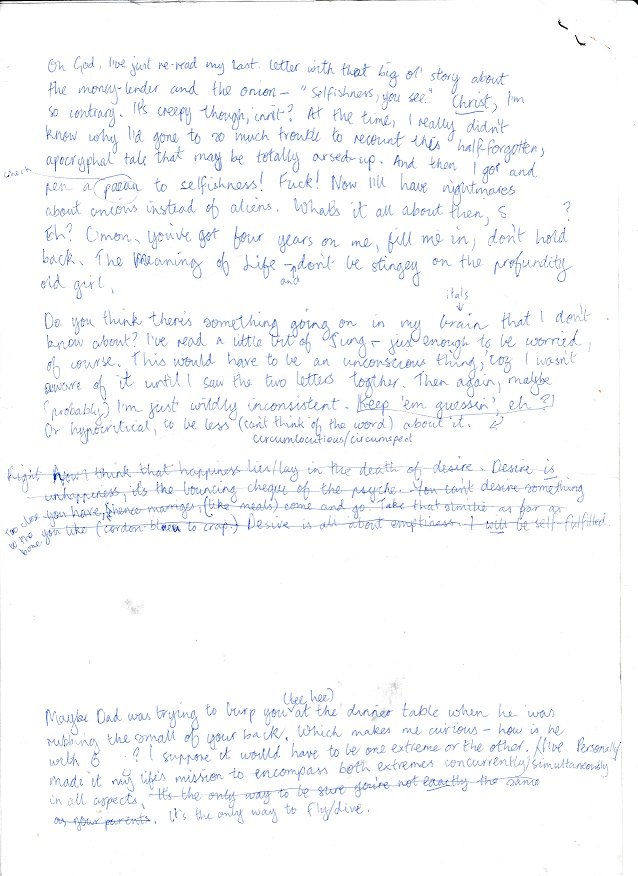 Oh God, I've just re-read my last letter with that big ol' story about
the money-lender and the onion – "selfishness, you see." Christ, I'm
so contrary. It's creepy though, innit? At the time, I really didn't
know why I'd gone to so much trouble to recount this half-forgotten,
apocryphal tale that may be totally arsed-up. And then I go and
check
pen a paean to selfishness! Fuck! Now I'll have nightmares
about onions instead of aliens. What's it all about then, S ?
Eh? C'mon, you've got four years on me, fill me in, don't hold
back. The Meaning of Life – don't be stingey on the profundity
and
old girl.
itals
Do you think there's something going on in my brain that I don't
know about? I've read a little bit of Jung – just enough to be worried,
of course. This would have to be an unconscious thing, 'coz I wasn't
aware of it until I saw the two letters together. Then again, maybe
(probably) I'm just wildly inconsistent. Keep 'em guessin', eh?
Or hypocritical, to be less (can't think of the word) about it.
circumlocutious/circumspect
Right Now I think that happiness lies/lay in the death of desire. Desire is
unhappiness, it's the bouncing cheque of the psyche. You can't desire something
Too close to the bone
you have, hence marriages (like meals) come and go. Take that similie as far as
you like (cordon bleu to crap.) Desire is all about emptiness. I will be self-fulfilled.
(tee hee)
Maybe Dad was trying to burp you at the dinner table when he was
rubbing the small of your back. Which makes me curious – how is he
with ? I suppose it would have to be one extreme or the other. /I've Personally
made it my life's mission to encompass both extremes concurrently/simultaneously
in all aspects. It's the only way to be sure you're not exactly the same
as your parents. It's the only way to fly/dive.